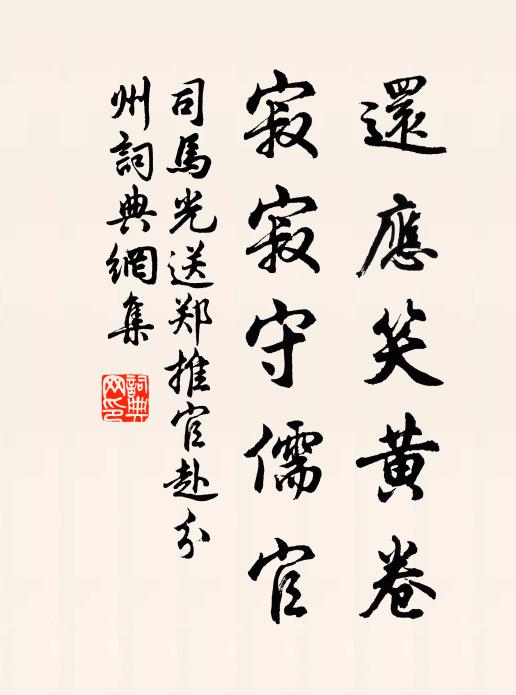 還應笑黄卷
寂寂守儒官
司馬光送郑推官赴分
州詞典網集
詞典网印